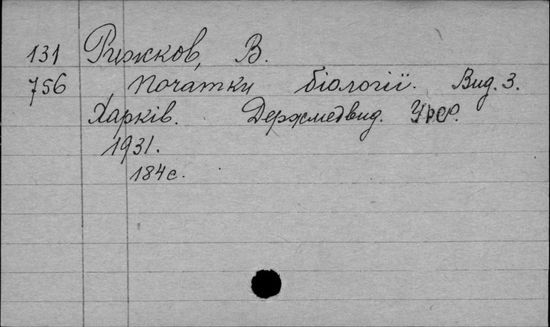 131 Рижков, В.
756 Початки біології. Вид. 3.
Харків. Держмедвид. УРСР.
1931.
184 с.